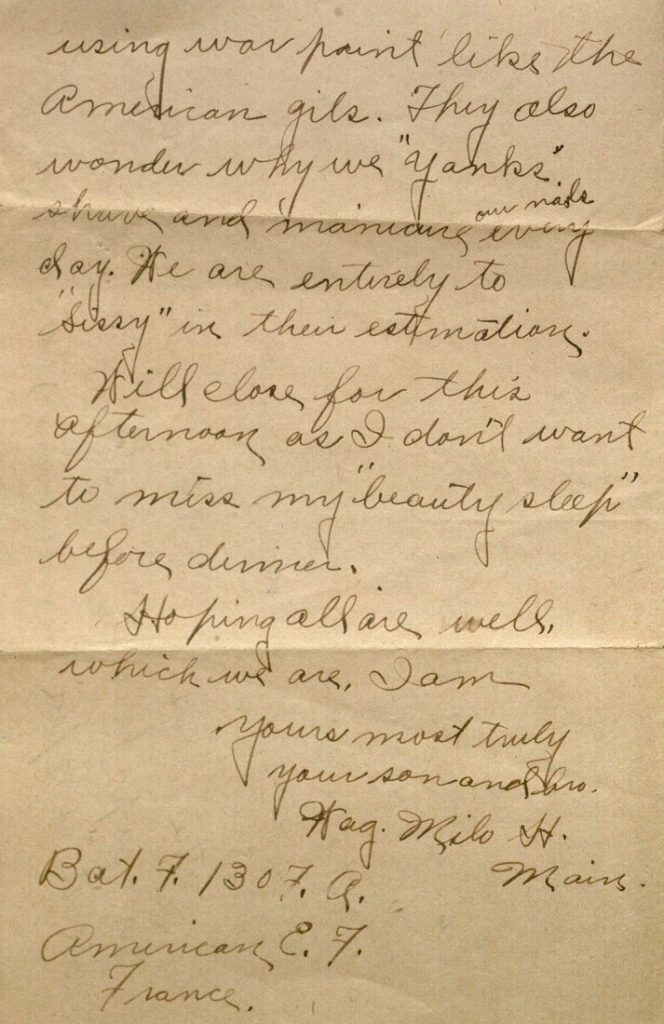 using war paint like the
American gils. They also
wonder why we "Yanks"
shave and manicure our nails every
day. We are entirely to
"Sissy" in their estimation.
Will close for this
afternoon as I don't want
to miss my "beauty sleep"
before dinner.
Hoping all are well,
which we are, I am
yours most truly
your son and bro.
Wag. Milo H.
Main.
Bat. F. 130 F. A.
American E. F.
France.